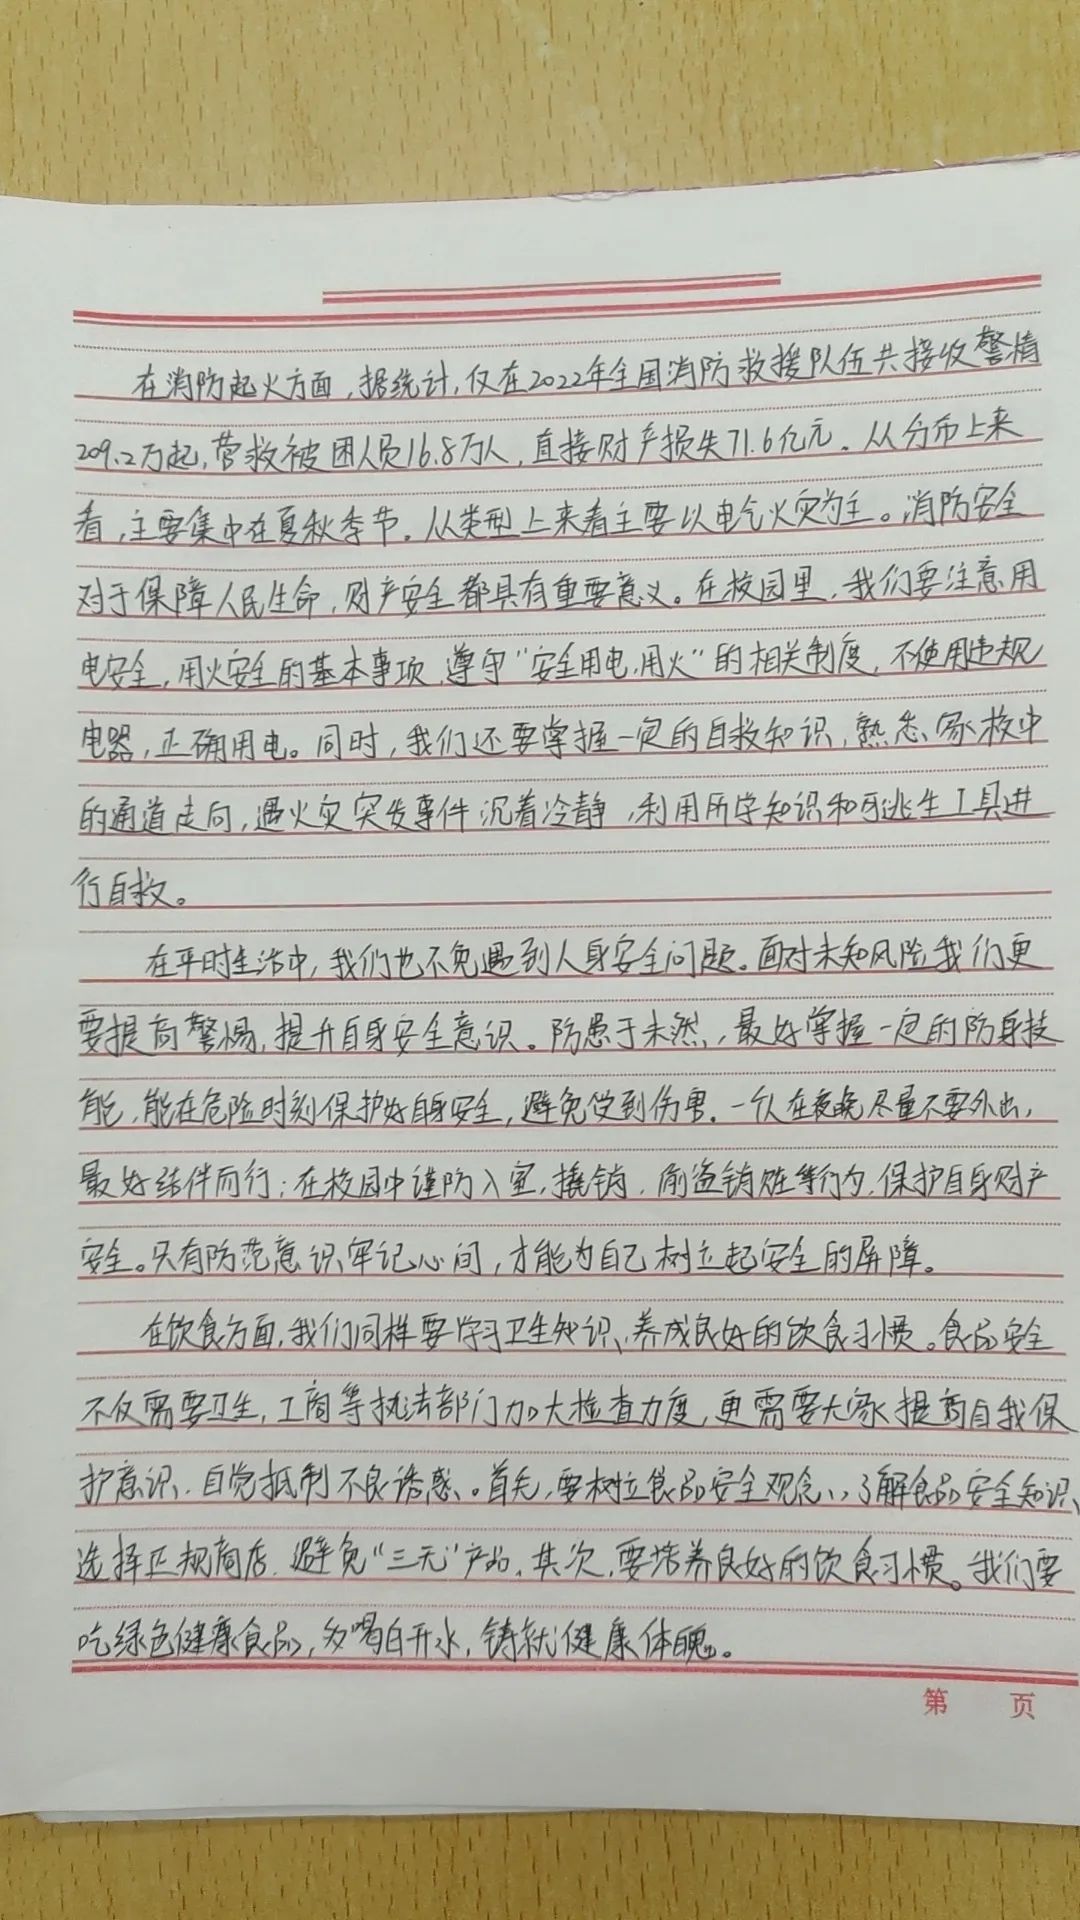 在消防起火方面，据统计，仅在2022年全国消防救援队伍共接收警情
209.2万起，营救被困人员16.8万人，直接财产损失71.6亿元。从分布上来
看，主要集中在夏秋季节。从类型上来看主要以电气火灾为主。消防安全
对于保障人民生命，财产安全都具有重要意义。在校园里，我们要注意用
电安全，用火安全的基本事项，遵守“安全用电、用火”的相关制度，不使用违规
电器，正确用电。同时，我们还要掌握一定的自救知识，熟悉家校中
的通道走向，遇火灾突发事件沉着冷静，利用所学知识和可逃生工具进
行自救。
在平时生活中，我们也不免遇到人身安全问题。面对未知风险我们更
要提高警惕，提升自身安全意识。防患于未然，最好掌握一定的防身技
能，能在危险时刻保护好自身安全，避免受到伤害。一个人在夜晚尽量不要外出，
最好结伴而行；在校园中谨防入室，撬锁，偷盗销赃等行为，保护自身财产
安全。只有防范意识牢记心间，才能为自己树立起安全的屏障。
在饮食方面，我们同样要学习卫生知识、养成良好的饮食习惯。食品安全
不仅需要卫生，工商等执法部门加大检查力度，更需要大家提高自我保
护意识，自觉抵制不良诱惑。首先，要树立食品安全观念，了解食品安全知识，
选择正规商店，避免“三无”产品，其次，要培养良好的饮食习惯。我们要
吃绿色健康食品，多喝白开水，铸就健康体魄。
第 页